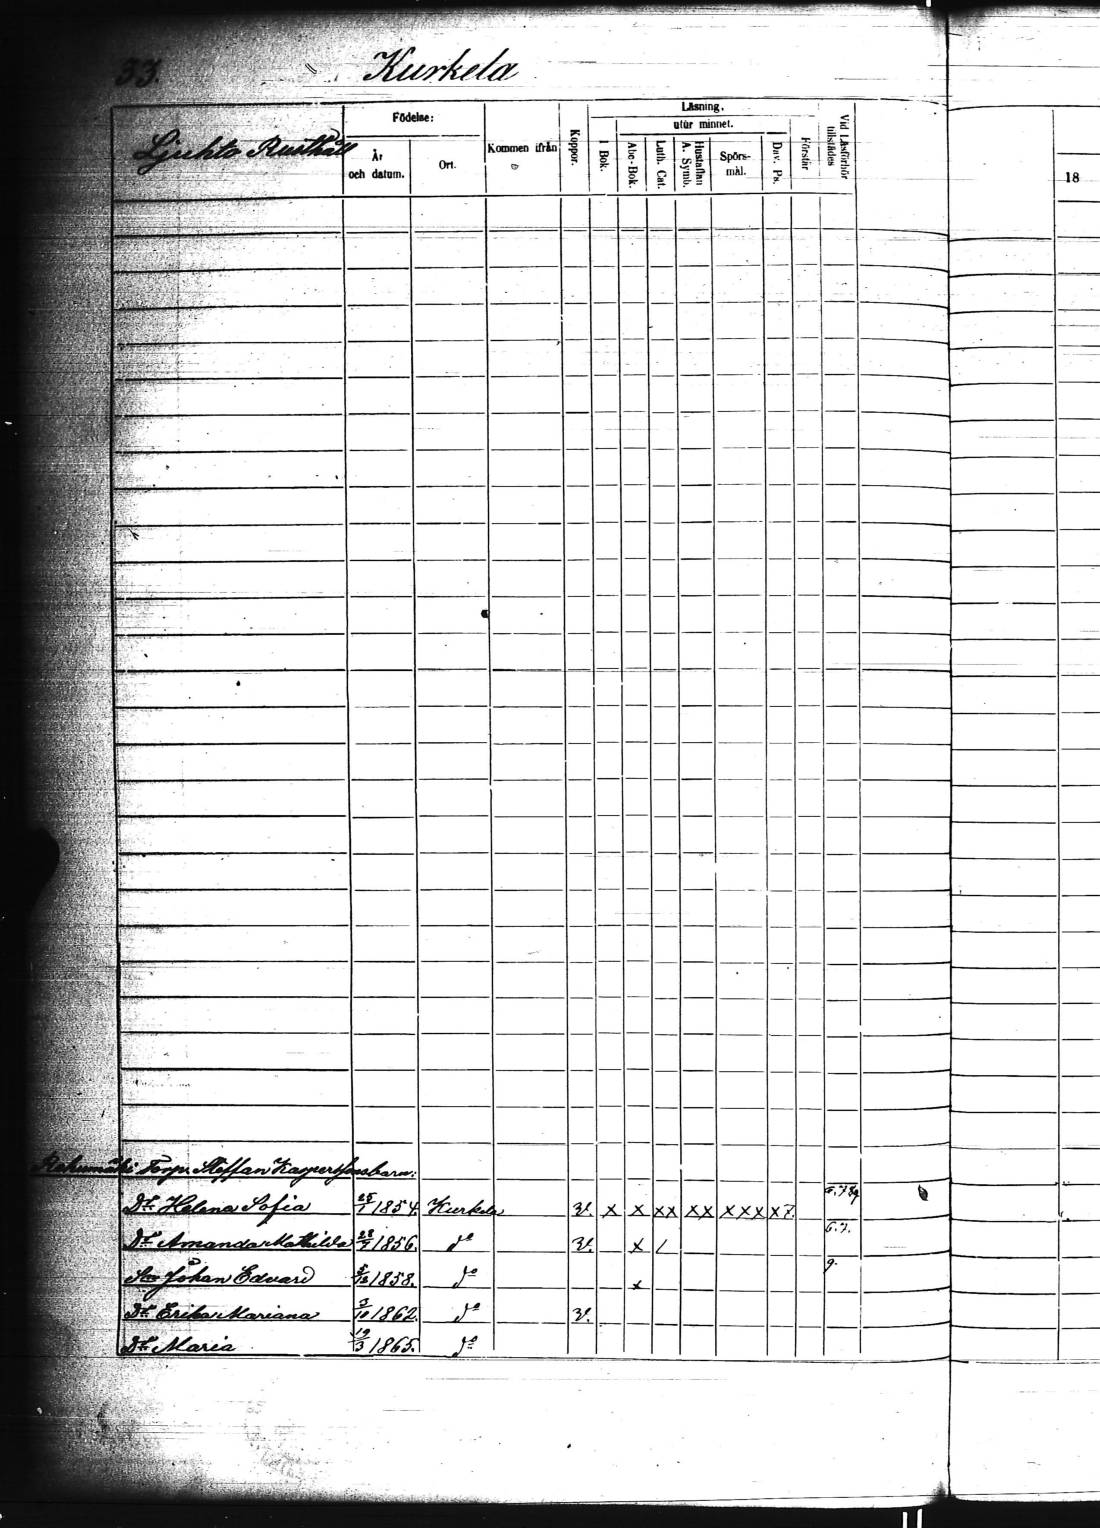 33. Kurkela
Ljuhto Rusthåll
Födelse:
År och datum.
Ort.
Kommen ifrån
Koppor.
Läsning,
utur minnet.
I Bok.
Abc-Bok.
Luth. Cat.
Hustaflan A. Symb.
Spörs-mål.
Dav. Ps.
Förstår
Vid Läsförhör tillstädes
18
Torp. Steffan Kaspersons barn:
Dr. Helena Sofia 25/7 1854. Kurkela v. x x xx xx xxx x7.
Dr. Amanda Mathilda 28/7 1856. do v. x / 6.7.
Son Johan Edvard 5/12 1858. do x 9.
Dr. Erika Mariana 3/10 1862. do v.
Dr. Maria 19/3 1865. do